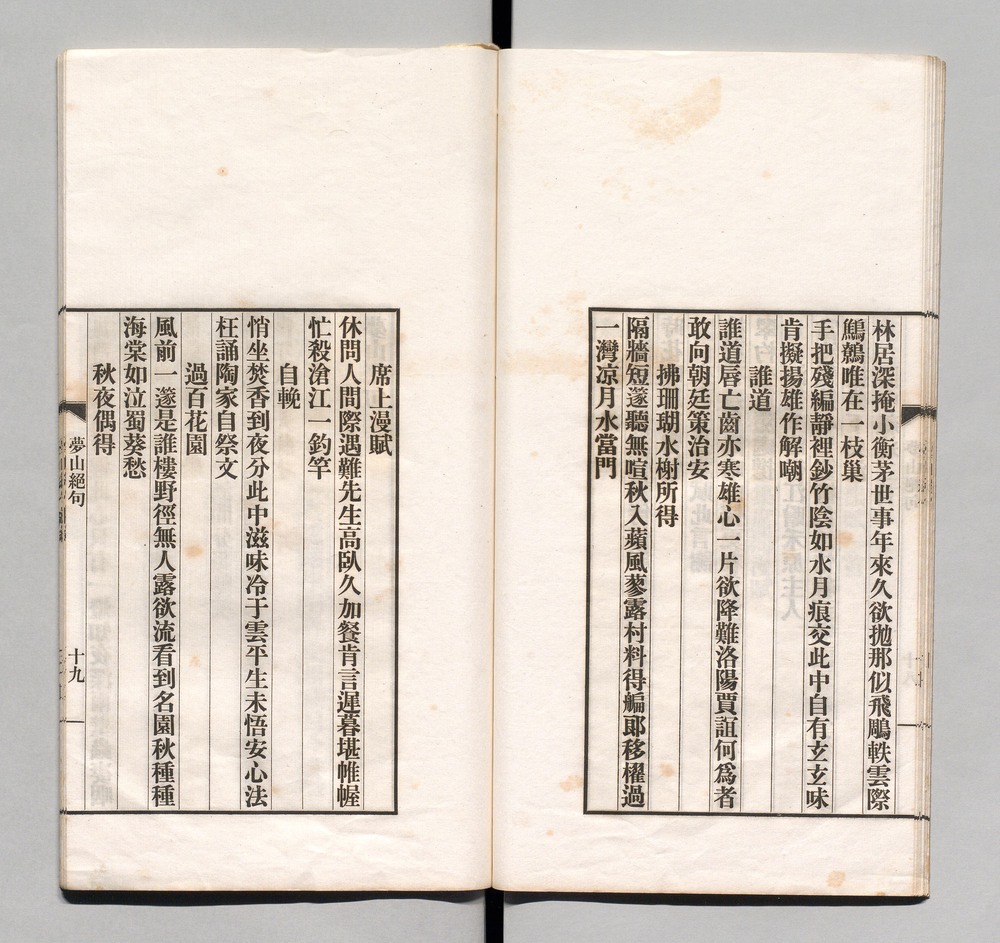 林居深掩小衡茅世事年來久欲抛那似飛鵰軼雲際
鷦鷯唯在一枝巢
手把殘編靜裡鈔竹陰如水月痕交此中自有玄玄味
肯擬揚雄作解嘲
誰道
誰道唇亡齒亦寒雄心一片欲降難洛陽賈誼何爲者
敢向朝廷策治安
拂珊瑚水榭所得
隔牆短邃聽無喧秋入蘋風蓼露村料得艑郞移櫂過
一灣凉月水當門
席上漫賦
休問人間際遇難先生高臥久加餐肯言遲暮堪帷幄
忙殺滄江一釣竿
自輓
悄坐焚香到夜分此中滋味冷于雲平生未悟安心法
枉誦陶家自祭文
過百花園
風前一邃是誰樓野徑無人露欲流看到名園秋種種
海棠如泣蜀葵愁
秋夜偶得
夢山絕句
十九